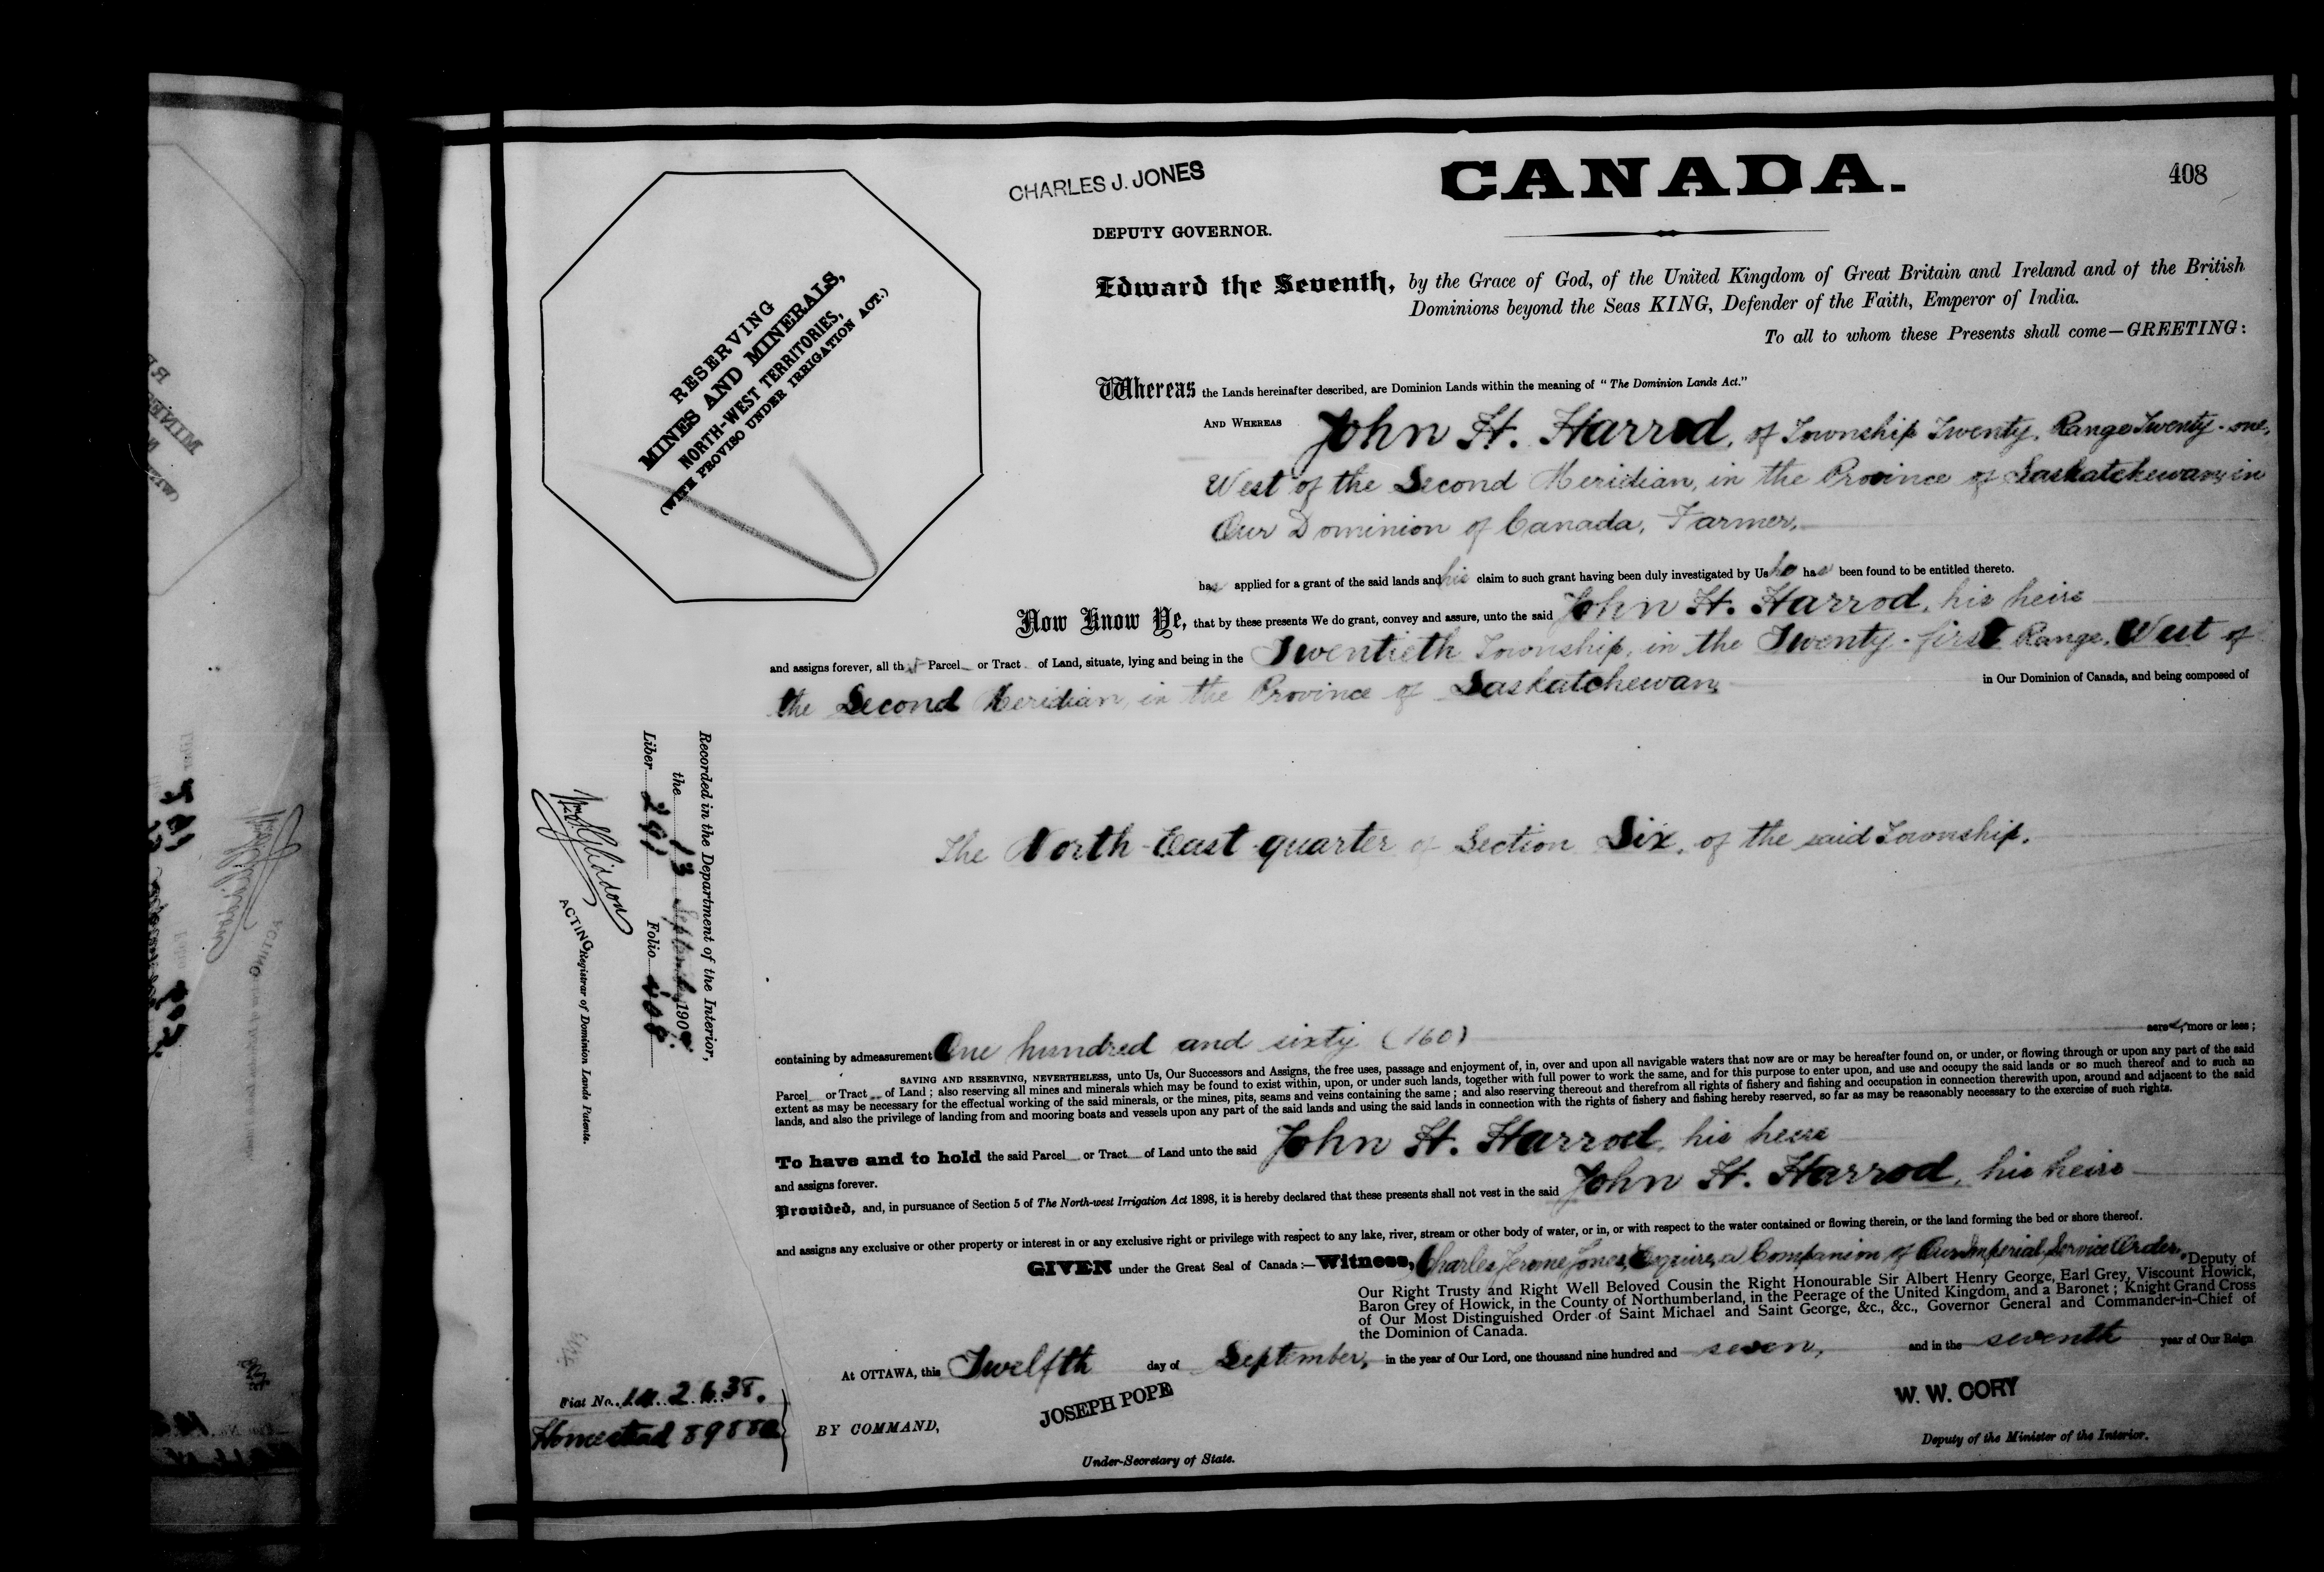 CHARLES J. JONES
CANADA.
408
DEPUTY GOVERNOR.
RESERVING
MINES AND MINERALS,
NORTH-WEST TERRITORIES,
(WITH PROVISO UNDER IRRIGATION ACT.)
Edward the Seventh, by the Grace of God, of the United Kingdom of Great Britain and Ireland and of the British
Dominions beyond the Seas KING, Defender of the Faith, Emperor of India.
To all to whom these Presents shall come—GREETING:
Whereas the Lands hereinafter described, are Dominion Lands within the meaning of "The Dominion Lands Act."
AND WHEREAS John H. Harrod, of Township Twenty, Range Twenty-one,
West of the Second Meridian, in the Province of Saskatchewan, in
Our Dominion of Canada, Farmer,
has applied for a grant of the said lands and his claim to such grant having been duly investigated by Us he has been found to be entitled thereto.
Now Know Ye, that by these presents We do grant, convey and assure, unto the said John H. Harrod, his heirs
and assigns forever, all that Parcel or Tract of Land, situate, lying and being in the Twentieth Township, in the Twenty-first Range, West of
the Second Meridian, in the Province of Saskatchewan, in Our Dominion of Canada, and being composed of
The North-East quarter of Section Six, of the said Township,
containing by admeasurement One hundred and sixty (160) acres, more or less;
SAVING AND RESERVING, NEVERTHELESS, unto Us, Our Successors and Assigns, the free uses, passage and enjoyment of, in, over and upon all navigable waters that now are or may be hereafter found on, or under, or flowing through or upon any part of the said
Parcel or Tract of Land; also reserving all mines and minerals which may be found to exist within, upon, or under such lands, together with full power to work the same, and for this purpose to enter upon, and use and occupy the said lands or so much thereof and to such an
extent as may be necessary for the effectual working of the said minerals, or the mines, pits, seams and veins containing the same; and also reserving thereout and therefrom all rights of fishery and fishing and occupation in connection therewith upon, around and adjacent to the said
lands, and also the privilege of landing from and mooring boats and vessels upon any part of the said lands and using the said lands in connection with the rights of fishery and fishing hereby reserved, so far as may be reasonably necessary to the exercise of such rights.
To have and to hold the said Parcel or Tract of Land unto the said John H. Harrod, his heirs
and assigns forever.
Provided, and, in pursuance of Section 5 of The North-west Irrigation Act 1898, it is hereby declared that these presents shall not vest in the said John H. Harrod, his heirs
and assigns any exclusive or other property or interest in or any exclusive right or privilege with respect to any lake, river, stream or other body of water, or in, or with respect to the water contained or flowing therein, or the land forming the bed or shore thereof.
GIVEN under the Great Seal of Canada:—Witness, Charles Jerome Jones, Esquire, a Companion of Our Imperial Service Order, Deputy of
Our Right Trusty and Right Well Beloved Cousin the Right Honourable Sir Albert Henry George, Earl Grey, Viscount Howick,
Baron Grey of Howick, in the County of Northumberland, in the Peerage of the United Kingdom, and a Baronet; Knight Grand Cross
of Our Most Distinguished Order of Saint Michael and Saint George, &c., &c., Governor General and Commander-in-Chief of
the Dominion of Canada.
At OTTAWA, this Twelfth day of September, in the year of Our Lord, one thousand nine hundred and seven, and in the seventh year of Our Reign
BY COMMAND,
JOSEPH POPE
Under-Secretary of State.
W. W. CORY
Deputy of the Minister of the Interior.
Recorded in the Department of the Interior,
the 13 September, 190
Liber 291 Folio 408.
ACTING Registrar of Dominion Lands Patents.
Fiat No.
Homestead